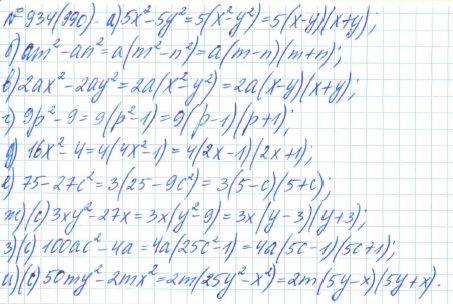 № 934(990)- а) 5x²-5y²=5(x²-y²)=5(x-y)(x+y);
б) am²-an²=a(m²-n²)=a(m-n)(m+n);
в) 2ax²-2ay²=2a(x²-y²)=2a(x-y)(x+y);
г) 9p²-9=9(p²-1)=9(p-1)(p+1);
д) 16x²-4=4(4x²-1)=4(2x-1)(2x+1);
е) 75-27c²=3(25-9c²)=3(5-c)(5+c);
ж)(с) 3xy²-27x=3x(y²-9)=3x(y-3)(y+3);
з)(с) 100ac²-4a=4a(25c²-1)=4a(5c-1)(5c+1);
и)(с) 50my²-2mx²=2m(25y²-x²)=2m(5y-x)(5y+x).